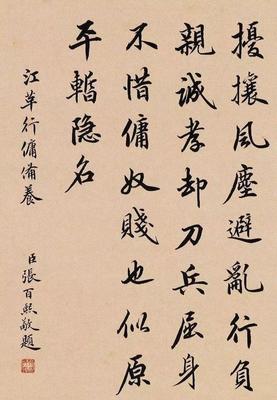 擾攘風塵避亂行負
親誠孝却刀兵屈身
不惜傭奴賤也似原
平暫隐名
江革行傭脩養
臣張百熙敬題